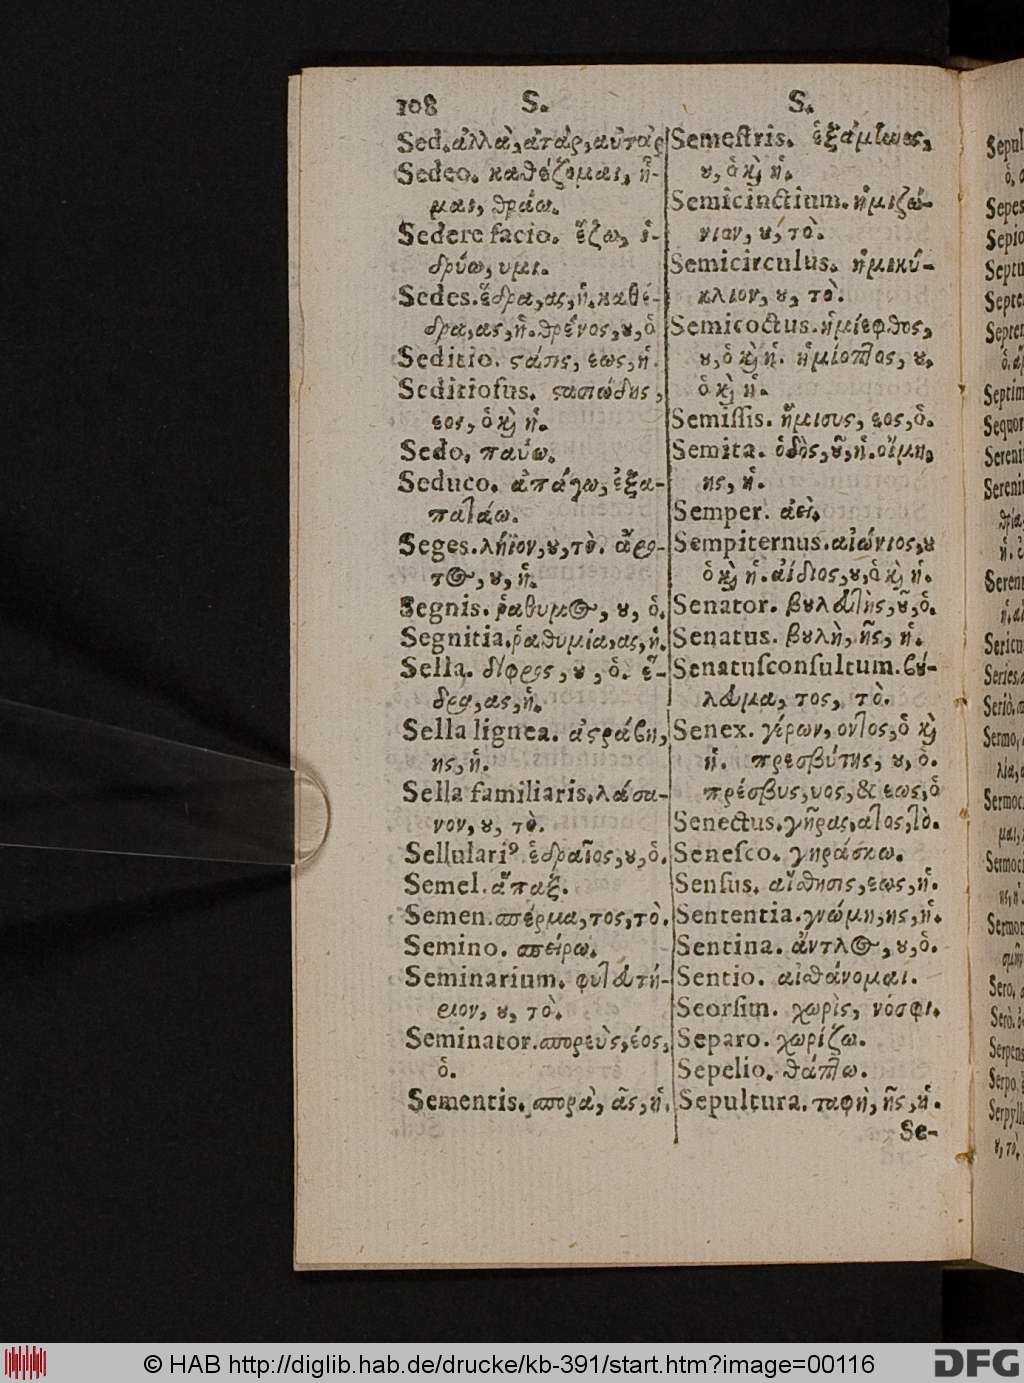 108 S. S.
Sed. ἀλλὰ, ἀτὰρ, αὐτὰρ
Sedeo. καθέζομαι, ἧ-
μαι, θράω.
Sedere facio. ἕζω, ἱ-
δρύω, υμι.
Sedes. ἕδρα, ας, ἡ. καθέ-
δρα, ας, ἡ. θρένος, ȣ, ὁ
Seditio. ϛάσις, εως, ἡ.
Seditioſus. ϛασιώδης,
εος, ὁ κὶ ἡ.
Sedo. παύω.
Seduco. ἀπάγω, ἐξα-
πατάω.
Seges. λήϊον, ȣ, τὸ. ἄρο-
τος, ȣ, ἡ.
Segnis. ῥάθυμος, ȣ, ὁ.
Segnitia. ῥαθυμία, ας, ἡ.
Sella. δίφρος, ȣ, ὁ. ἕ-
δρα, ας, ἡ.
Sella lignea. ἀϛράβη,
ης, ἡ.
Sella familiaris. λάσα-
νον, ȣ, τὸ.
Sellulariꝰ ἑδραῖος, ȣ, ὁ.
Semel. ἅπαξ.
Semen. σπέρμα, τος, τὸ.
Semino. σπείρω.
Seminarium. φυτευτή-
ριον, ȣ, τὸ.
Seminator. σπορεὺς, έος,
ὁ.
Sementis. σπορὰ, ᾶς, ἡ.
Semeſtris. ἑξάμηνος,
ȣ, ὁ κὶ ἡ.
Semicinctium. ἡμιζώ-
νιον, ȣ, τὸ.
Semicirculus. ἡμικύ-
κλιον, ȣ, τὸ.
Semicoctus. ἡμίεφθος,
ȣ, ὁ κὶ ἡ. ἡμίοπτος, ȣ,
ὁ κὶ ἡ.
Semiſſis. ἥμισυς, εος, ὁ.
Semita. ὁδὸς, ȣ͂, ἡ. οἴμη,
ης, ἡ.
Semper. ἀεὶ.
Sempiternus. αἰώνιος, ȣ
ὁ κὶ ἡ. ἀίδιος, ȣ, ὁ κὶ ἡ.
Senator. βȣλευτὴς, ȣ͂, ὁ.
Senatus. βȣλὴ, ῆς, ἡ.
Senatuſconſultum. βȣ́-
λευμα, τος, τὸ.
Senex. γέρων, οντος, ὁ κὶ
ἡ. πρεσβύτης, ȣ, ὁ.
πρέσβυς, υος, & εως, ὁ
Senectus. γῆρας, ατος, τὸ.
Seneſco. γηράσκω.
Senſus. αἴσθησις, εως, ἡ.
Sententia. γνώμη, ης, ἡ.
Sentina. ἄντλος, ȣ, ὁ.
Sentio. αἰσθάνομαι.
Seorſim. χωρὶς, νόσφι.
Separo. χωρίζω.
Sepelio. θάπτω.
Sepultura. ταφὴ, ῆς, ἡ.
Se-
© HAB http://diglib.hab.de/drucke/kb-391/start.htm?image=00116
DFG